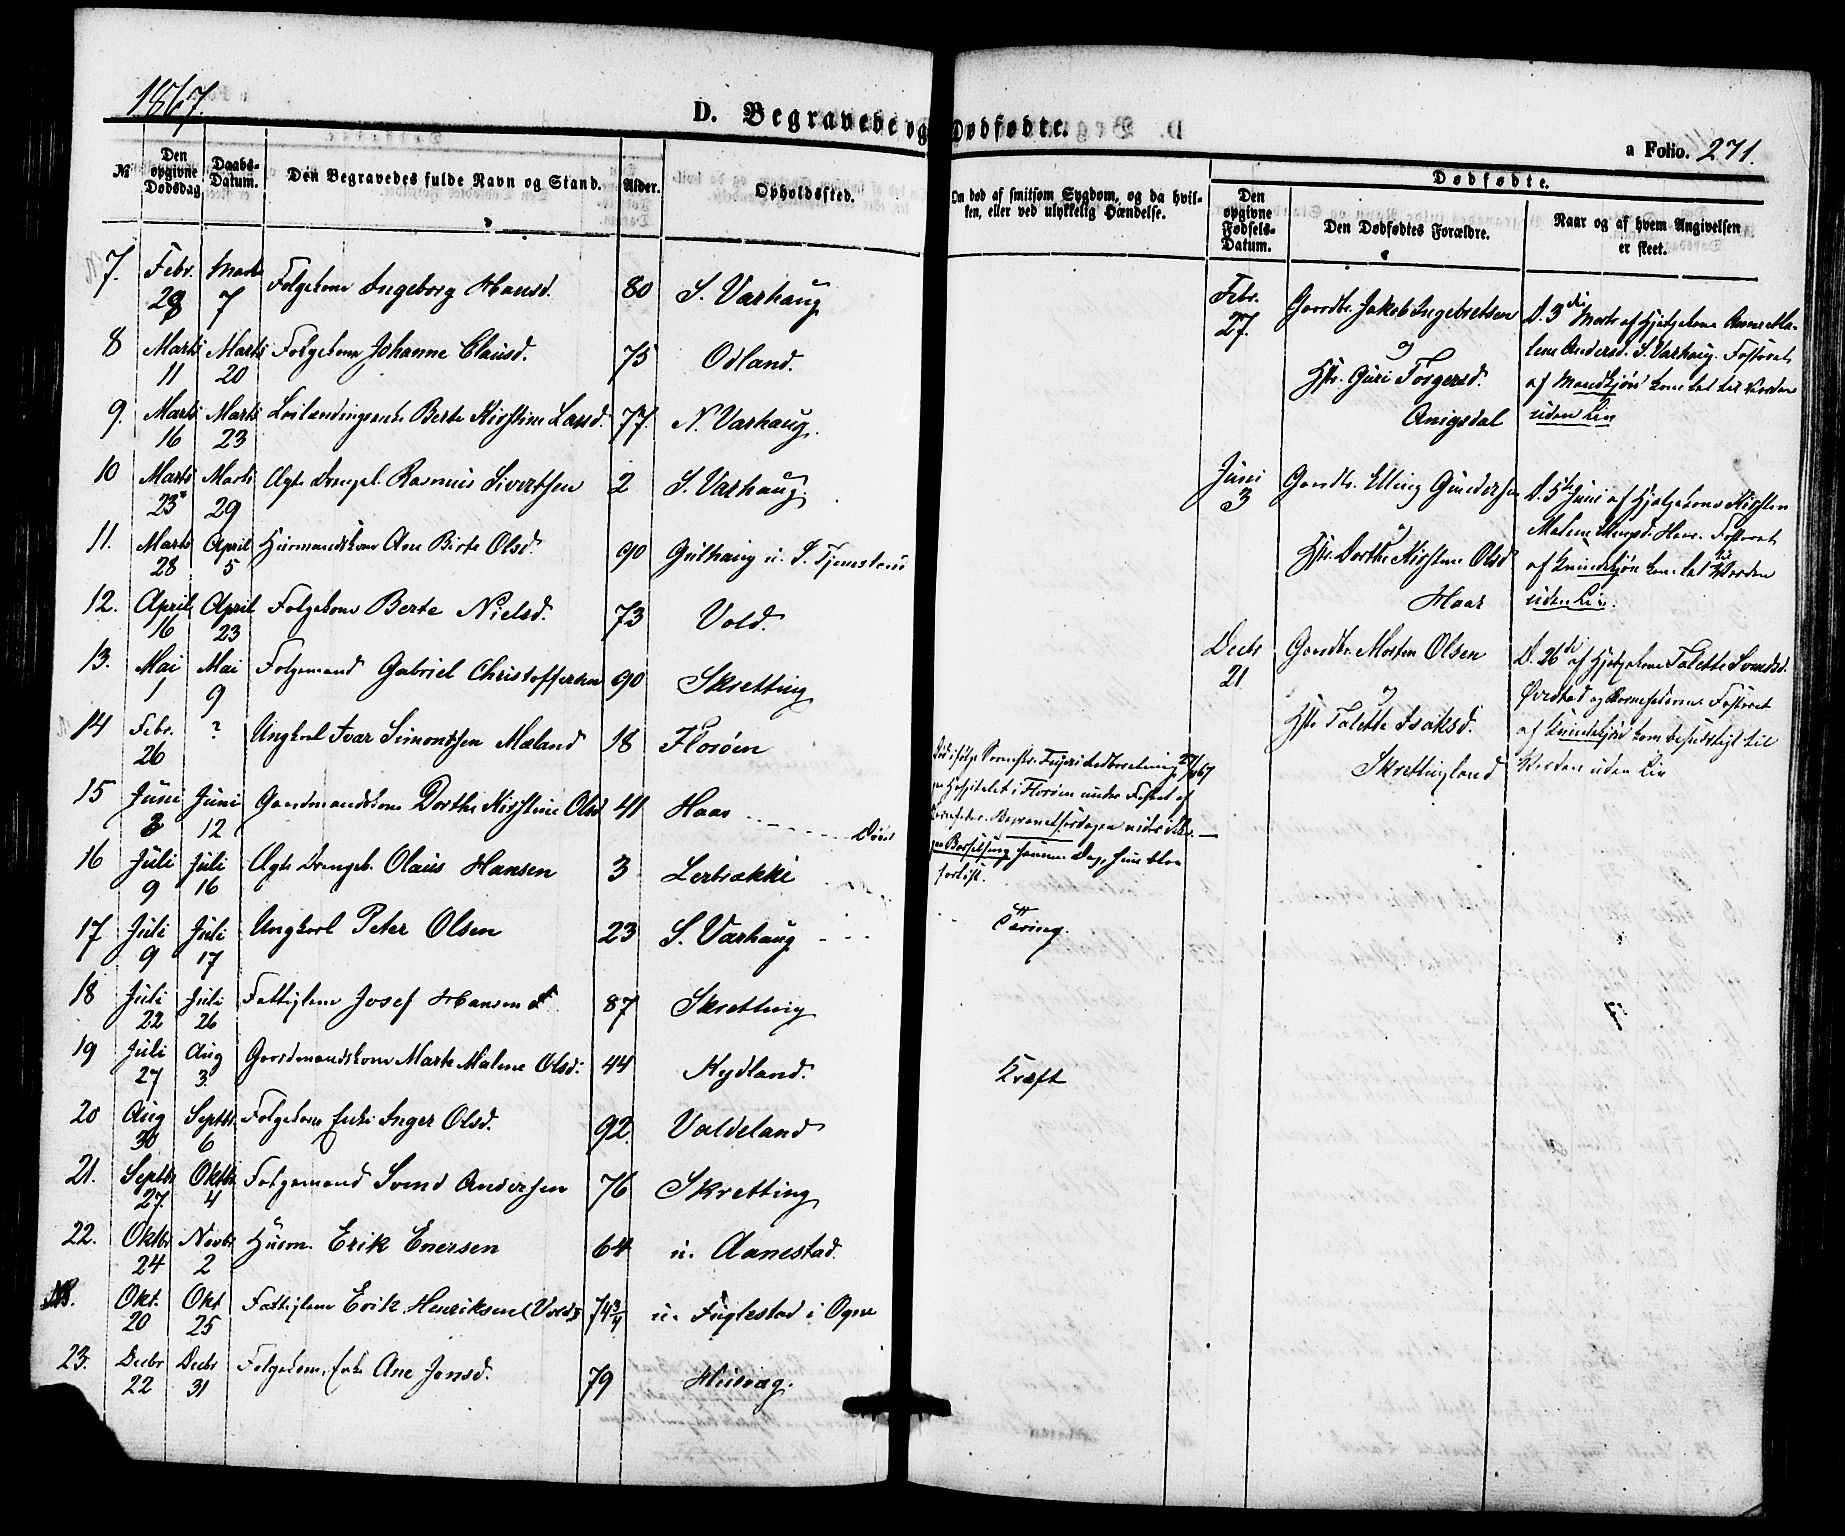 1867.
D. Begravede og Dødfødte.
a Folio. 271.
№ Den opgivne Dødsdag. Daabs-Datum. Den Begravedes fulde Navn og Stand. Alder. Opholdssted.
Om død af smitsom Sygdom, og da hvil-
ken, eller ved ulykkelig Hændelse.
Dødfødte.
Den opgivne Fødsels-Datum. Den Dødfødtes Forældre. Naar og af hvem Angivelsen er skeet.
7. Febr. 28 Marts 7 Folgekone Ingeborg Hansd. 80 S. Varhaug
8 Marts 11 Marts 20 Folgekone Johanne Clausd. 75 Odland.
9. Marts 16 Marts 23 Berte Kirstine Larsd. 77. N. Varhaug.
10 Marts 23 Marts 29 Ægte Drengeb. Rasmus Sivertsen 2 S. Varhaug.
11. Marts 28 April 5 Huusmandskone Ane Birte Olsd. 90 Gulhaug u. S.
12. April 16 April 23 Folgekone Berte Nielsd. 73 Vold.
13. Mai 1 Mai 9 Folgemand Gabriel Christoffersen 90 Skretting
14 Febr. 26 ? Ungkarl Ivar Simonsen Mæland 18 Florøen
15 Juni 3 Juni 12 Gaardmandskone Dorthe Kirstine Olsd 41 Haar
16 Juli 9 Juli 16 Ægte Drengeb. Olaus Hansen 3 Lerbrække
17 Juli 9 Juli 17 Ungkarl Peter Olsen 23 S. Varhaug Tæring.
18 Juli 22 Juli 26 Fattiglem Josef Hansen 87 Skretting
19 Juli 27 Aug 3. Gaardmandskone Marte Malene Olsd. 44 Rydland. Kræft
20 Aug 30 Septbr. 6 Folgekone Enke Inger Olsd. 92. Valdeland
21. Septbr 27. Oktbr 4 Folgemand Svend Andersen 76 Skretting
22. Oktbr 24 Novbr 2 Huusm. Erik Enersen 64 u. Aanestad.
Okt. 20 Okt 25 Fattiglem Erik Henriksen (Vold) 74 3/4 u. Fuglestad i Ogne
23. Decbr 22 Decbr 31 Folgekone, Enke Ane Jonsd. 79
paa Hospitalet i Florøen under
paa Barselseng samme Dag, hun blev
forløst.
Febr. 27. Gaardbr. Jakob Ingebretsen
og
Hstr. Guri Torgersd.
Anigsdal
D. 3die Marts af Hjelpekone Anne Ma-
lene Andersd. S. Varhaug. Fosteret
af Mandkjøn kom til Verden
uden Liv
Juni 3 Gaardbr. Elling Gundersen
og
Hstr. Dorthe Kirstine Olsd
Haar
D. 5te Juni af Hjelpekone Kirsten
Malene Haar. Fosteret
af Kvindekjøn kom til Verden
uden Liv.
Decbr 21 Gaardbr. Morten Olsen
og
Hstr. Talette Isaksd.
Skrettingland
D. 26de af Hjelpekone Talette Svendsd.
og Fosteret
af Kvindekjøn kom til
Verden uden Liv